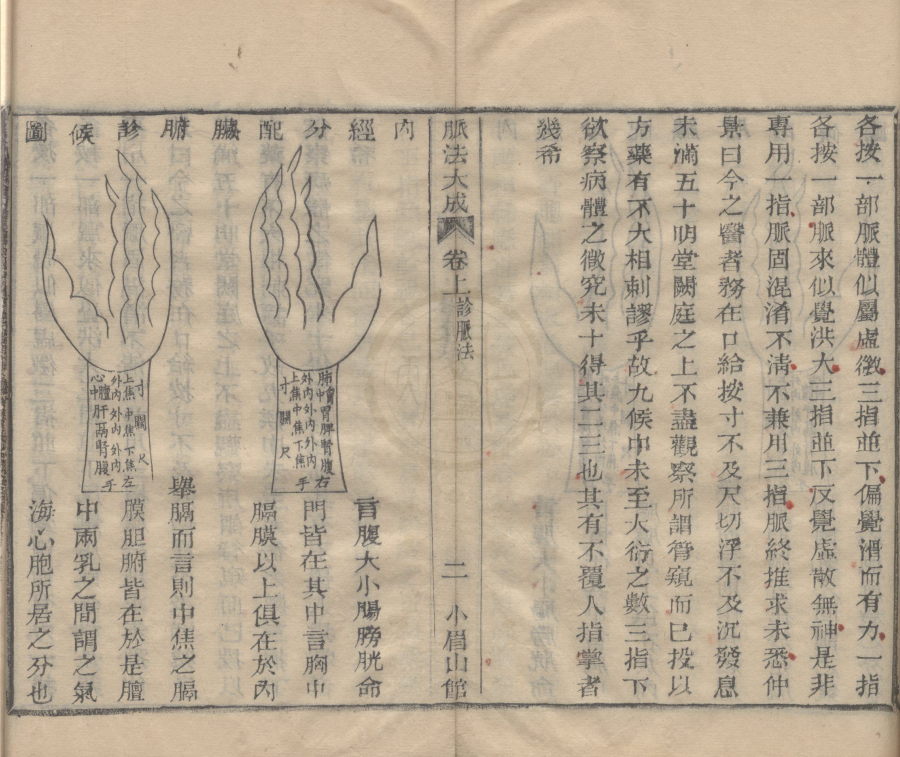 各按一部脈體似屬虛微三指並下偏覺滑而有力一指
各按一部脈來似覺洪大三指並下反覺虛散無神是非
專用一指脈固混淆不清不兼用三指脈終推求未悉仲
景曰今之醫者務在口給按寸不及尺切浮不及沉發息
未滿五十明堂闕庭之上不盡觀察所謂管窺而已投以
方藥有不大相刺謬乎故九候中未至大衍之數三指下
欲察病體之微究未十得其二三也其有不覆人指掌者
幾希
脈法大成 卷上 診脈法 二 小眉山館
內經分配臟腑診候圖
右手
寸 關 尺
上焦 中焦 下焦
外內 外內 外內
肺胸中 胃脾 腎腹
左手
寸 關 尺
上焦 中焦 下焦
外內 外內 外內
心膻中 肝鬲 腎腹
言腹大小腸膀胱命
門皆在其中言胸中
膈膜以上俱在於內
舉膈而言則中焦之膈
膜胆腑皆在於是膻
中兩乳之間謂之氣
海心胞所居之分也